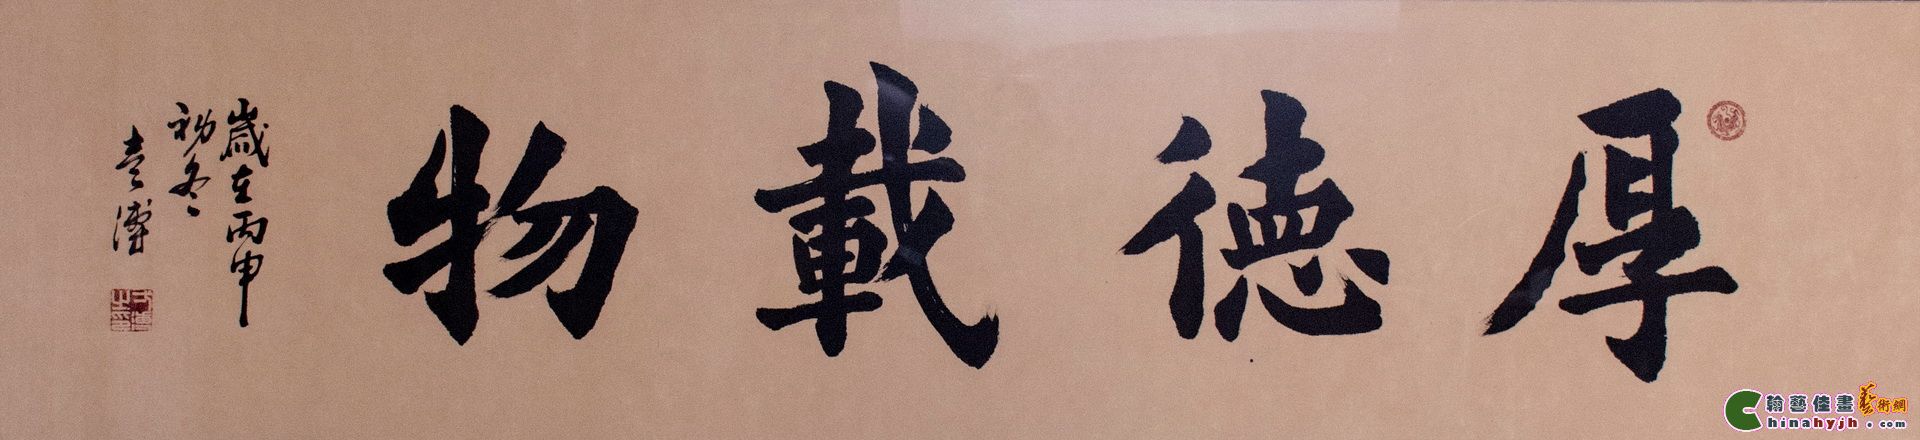 厚德載物
歲在丙申
初冬
翰藝佳畫藝術網
Chinahyjh.com